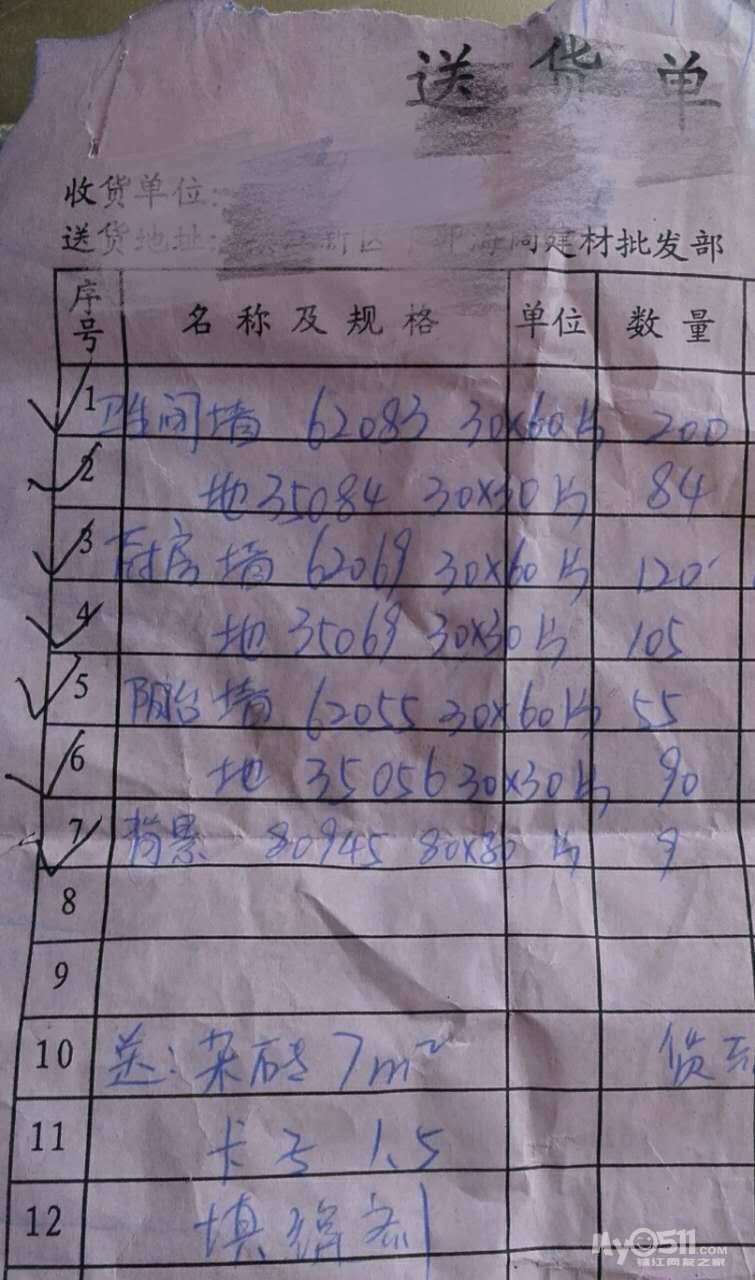 送货单
收货单位:
送货地址: 新区 建材批发部
序号 名称及规格 单位 数量
1 卫生间墙 62083 30×60 片 200
2 地 35084 30×30 片 84
3 厨房墙 62069 30×60 片 120
4 地 35069 30×30 片 105
5 阳台墙 62055 30×60 片 55
6 地 35056 30×30 片 90
7 背景 80945 80×80 片 9
8
9
10 送:杂砖 7m² 货
11 卡子 1.5
12 填缝剂
My0511.com
镇江网友之家